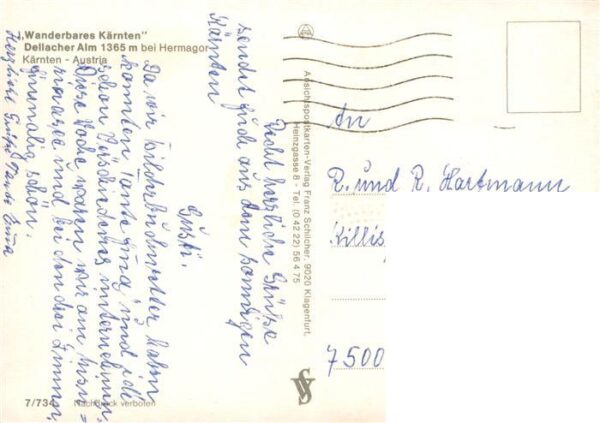 „Wanderbares Kärnten"
Dellacher Alm 1365 m bei Hermagor
Kärnten - Austria
Recht herzliche Grüße
sendet Euch aus dem sonnigen
Kärnten
Da wir Bilderbuchwetter haben
konnten Tante und ich
schon Verschiedenes unternehmen.
Diese Woche waren wir am
und bei den drei Zinnen,
einmalig schön.
Herzliche Grüße Tante
Ansichtspostkarten-Verlag Franz Schilcher, 9020 Klagenfurt,
Heinzgasse 8 - Tel. (0 42 22) 56 4 75
An
R. und R. Hartmann
Killis
7500
7/734 Nachdruck verboten